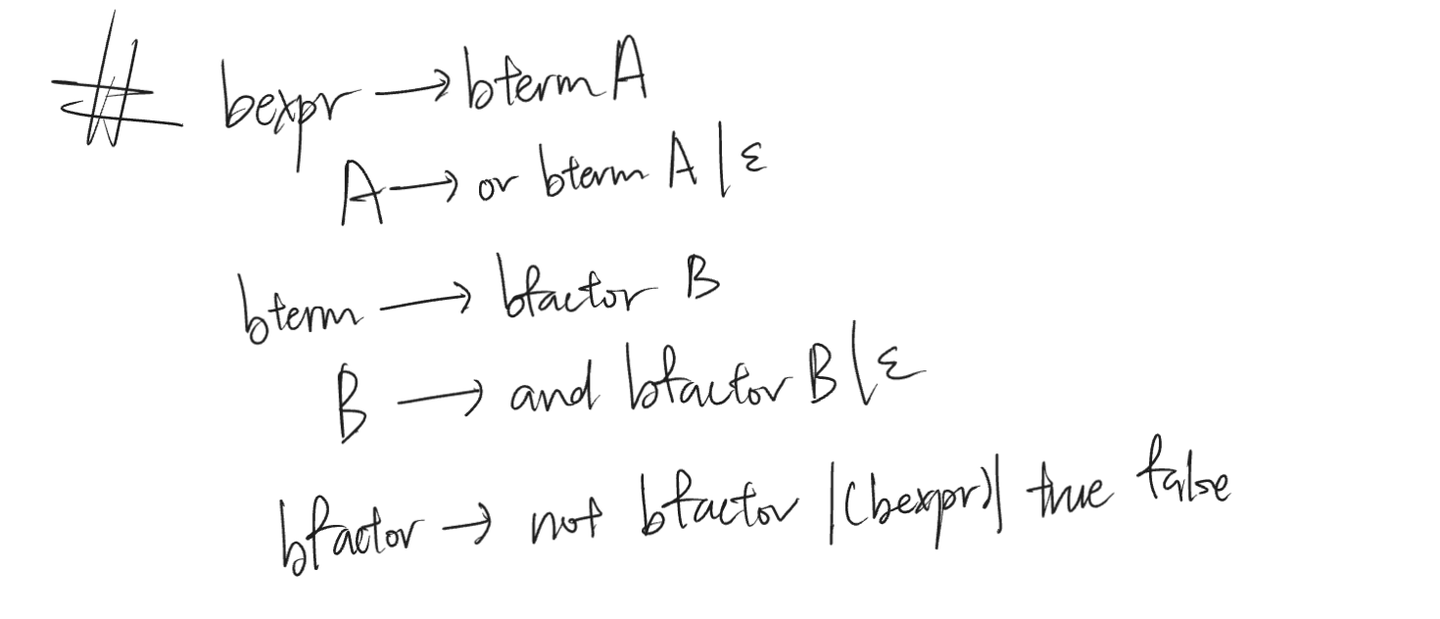 # bexpr → bterm A
A → or bterm A | ε
bterm → bfactor B
B → and bfactor B | ε
bfactor → not bfactor | (bexpr) | true false